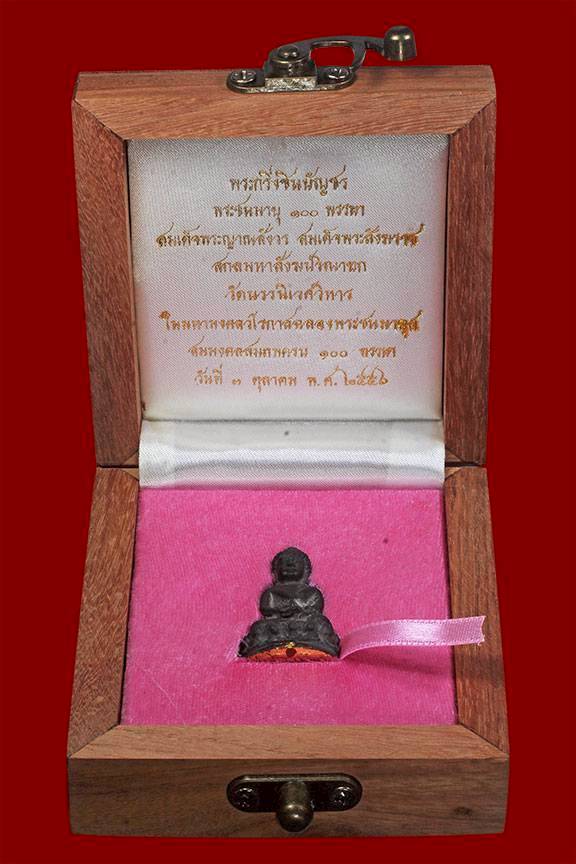 พระกริ่งชินบัญชร
พระชนมายุ ๑๐๐ พรรษา
สมเด็จพระญาณสังวร สมเด็จพระสังฆราช
สกลมหาสังฆปริณายก
วัดบวรนิเวศวิหาร
ในมหามงคลวโรกาสฉลองพระชนมายุ
สมมงคล ๑๐๐ พรรษา
วันที่ ๓ ตุลาคม พ.ศ. ๒๕๕๖